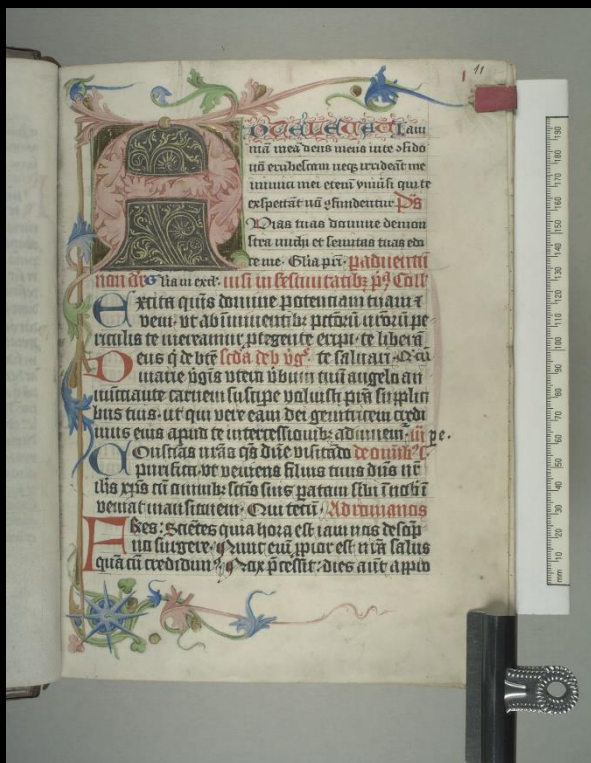 11
AD TE LEVAVI
mā mea deus meus in te cōfido
nō erubescam neqz irrideāt me
inimici mei etenī vniūsi qui te
exspectāt nō ꝯfundentur Ps
Vias tuas domine demon
stra michi et semitas tuas edo
ce me · Glīa pri · p aduentū
non dr Glīa in exc nisi in festiuitatibz Coll
Excita quis domine potentiam tuam ⁊
veni · vt ab iminentibz pctōrū nrōrū pe
riculis te mereamur ptegente eripi · te liberā
Deus q̄ de btē scda deb vgs te saluari
marie vgis vtero vbum tuū angelo an
nuncciante carnem suscipe voluisti pta supplici
bus tuis · ut qui vere eam dei genitricem credi
mus eius apud te intercessionibz adiuuem · pe ·
Conscias nrās qs dūe visitādo de omibz
purifica · vt veniens filius tuus dūs nr
ihs xps cū omnibz sctis suis patam sibi ī nobī
veniat mansionem · Qui tecū · Ad romanos
Fres : Sciētes quia hora est iam nos de sōp
no surgere · Nunc enī ppior est nrā salus
quā cū credidim · Nox pcessit : dies aūt appro
mm 10 20 30 40 50 60 70 80 90 100 110 120 130 140 150 160 170 180 190